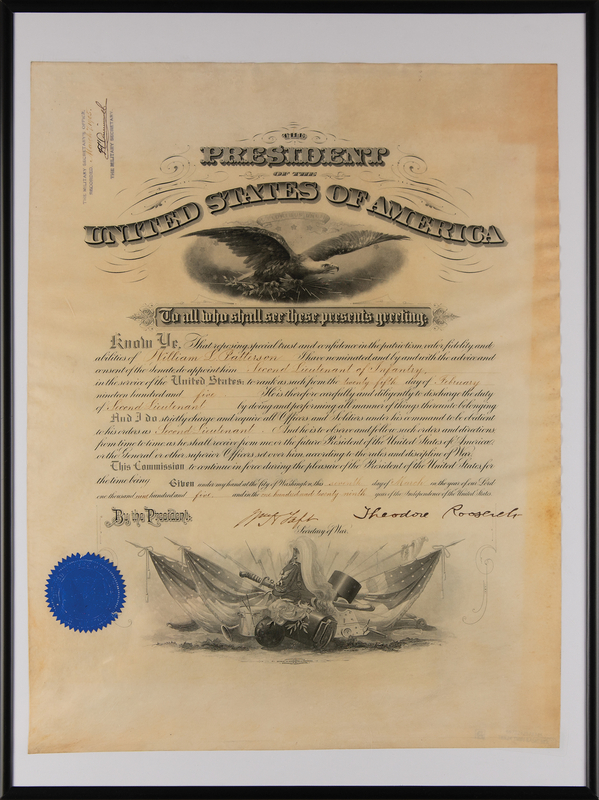 THE
PRESIDENT
OF THE
UNITED STATES OF AMERICA
To all who shall see these presents greeting:
Know Ye, That reposing special trust and confidence in the patriotism, valor, fidelity and
abilities of William L. Patterson I have nominated and by and with the advice and
consent of the Senate do appoint him Second Lieutenant of Infantry
in the service of the United States: to rank as such from the twenty fifth day of February
nineteen hundred and five He is therefore carefully and diligently to discharge the duty
of Second Lieutenant by doing and performing all manner of things thereunto belonging
And I do strictly charge and require all Officers and Soldiers under his command to be obedient
to his orders as Second Lieutenant And he is to observe and follow such orders and directions
from time to time as he shall receive from me or the future President of the United States of America,
or the General or other superior Officers set over him, according to the rules and discipline of War.
This Commission to continue in force during the pleasure of the President of the United States for
the time being
Given under my hand at the City of Washington, this seventh day of March in the year of our Lord
one thousand nine hundred and five and in the one hundred and twenty ninth year of the Independence of the United States.
By the President:
Wm H Taft
Theodore Roosevelt
Secretary of War.
THE MILITARY SECRETARY'S OFFICE
THE MILITARY SECRETARY